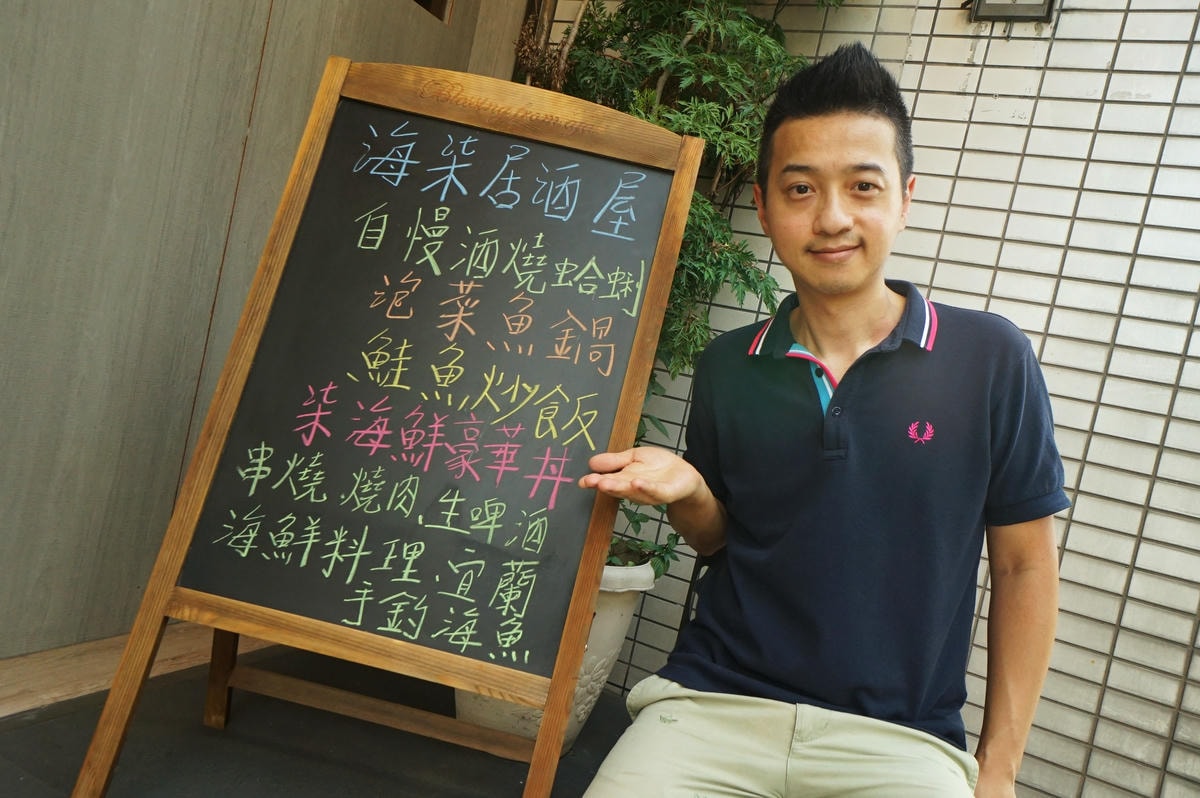 海柒居酒屋
自慢酒燒蛤蜊
泡菜魚鍋
鮭魚炒飯
柒海鮮豪華丼
串燒 燒肉、生啤酒
海鮮料理、宜蘭
手釣海魚